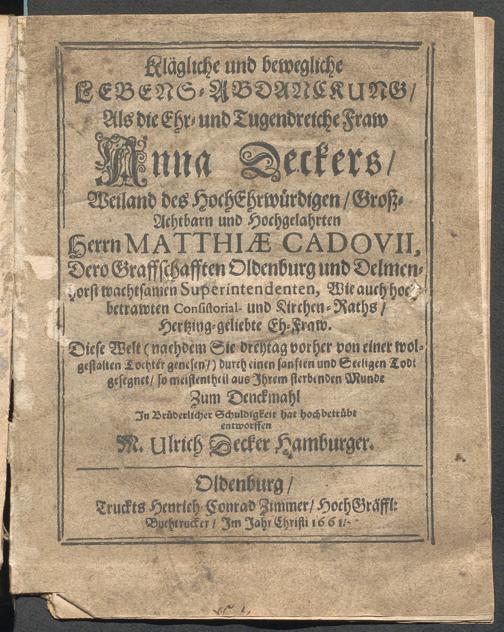 Klägliche und bewegliche
LEBENS-ABDANCKUNG/
Als die Ehr- und Tugendreiche Fraw
Anna Deckers/
Weiland des HochEhrwürdigen/ Groß-
Achtbarn und Hochgelahrten
Herrn MATTHIÆ CADOVII,
Dero Graffschafften Oldenburg und Delmen-
horst wachtsamen Superintendenten, Wie auch hoch-
betrawten Consistorial- und Kirchen-Raths/
Hertzing-geliebte Eh-Fraw.
Diese Welt (nachdem Sie dreytag vorher von einer wol-
gestalten Tochter genesen/) durch einen sanften und Seeligen Todt
gesegnet/ so meistentheil aus Ihrem sterbenden Munde
Zum Denckmahl
In Brüderlicher Schuldigkeit hat hochbetrübt
entworffen
M. Ulrich Decker Hamburger.
Oldenburg/
Truckts Henrich Conrad Zimmer/ HochGräffl:
Buchtrucker/ Im Jahr Christi 1661/-